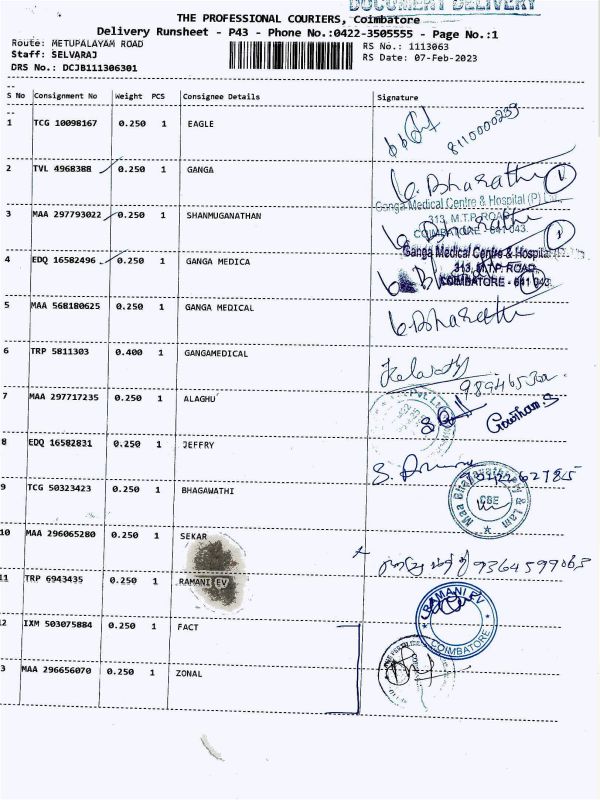 DOCUMENT DELIVERY
THE PROFESSIONAL COURIERS, Coimbatore
Delivery Runsheet - P43 - Phone No.:0422-3505555 - Page No.:1
Route: METUPALAYAM ROAD
RS No.: 1113063
Staff: SELVARAJ
RS Date: 07-Feb-2023
DRS No.: DCJB111306301
S No Consignment No Weight PCS Consignee Details Signature
1 TCG 10098167 0.250 1 EAGLE
8110000239
2 TVL 4968388 0.250 1 GANGA
G. Bharathi 1
Ganga Medical Centre & Hospital (P) Ltd.,
3 MAA 297793022 0.250 1 SHANMUGANATHAN
313, M.T.P. ROAD
COIMBATORE - 641 043.
G. Bharathi 1
4 EDQ 16582496 0.250 1 GANGA MEDICA
Ganga Medical Centre & Hospital
313, M.T.P. ROAD,
COIMBATORE - 641 043.
G. Bharathi
5 MAA 568180625 0.250 1 GANGA MEDICAL
G. Bharathi
6 TRP 5811303 0.400 1 GANGAMEDICAL
7 MAA 297717235 0.250 1 ALAGHU
Gowtham.S
8 EDQ 16582831 0.250 1 JEFFRY
9 TCG 50323423 0.250 1 BHAGAWATHI
CBE
10 MAA 296065280 0.250 1 SEKAR
9364599063
11 TRP 6943435 0.250 1 RAMANI EV
RAMANI EV
COIMBATORE
12 IXM 503075884 0.250 1 FACT
13 MAA 296656070 0.250 1 ZONAL